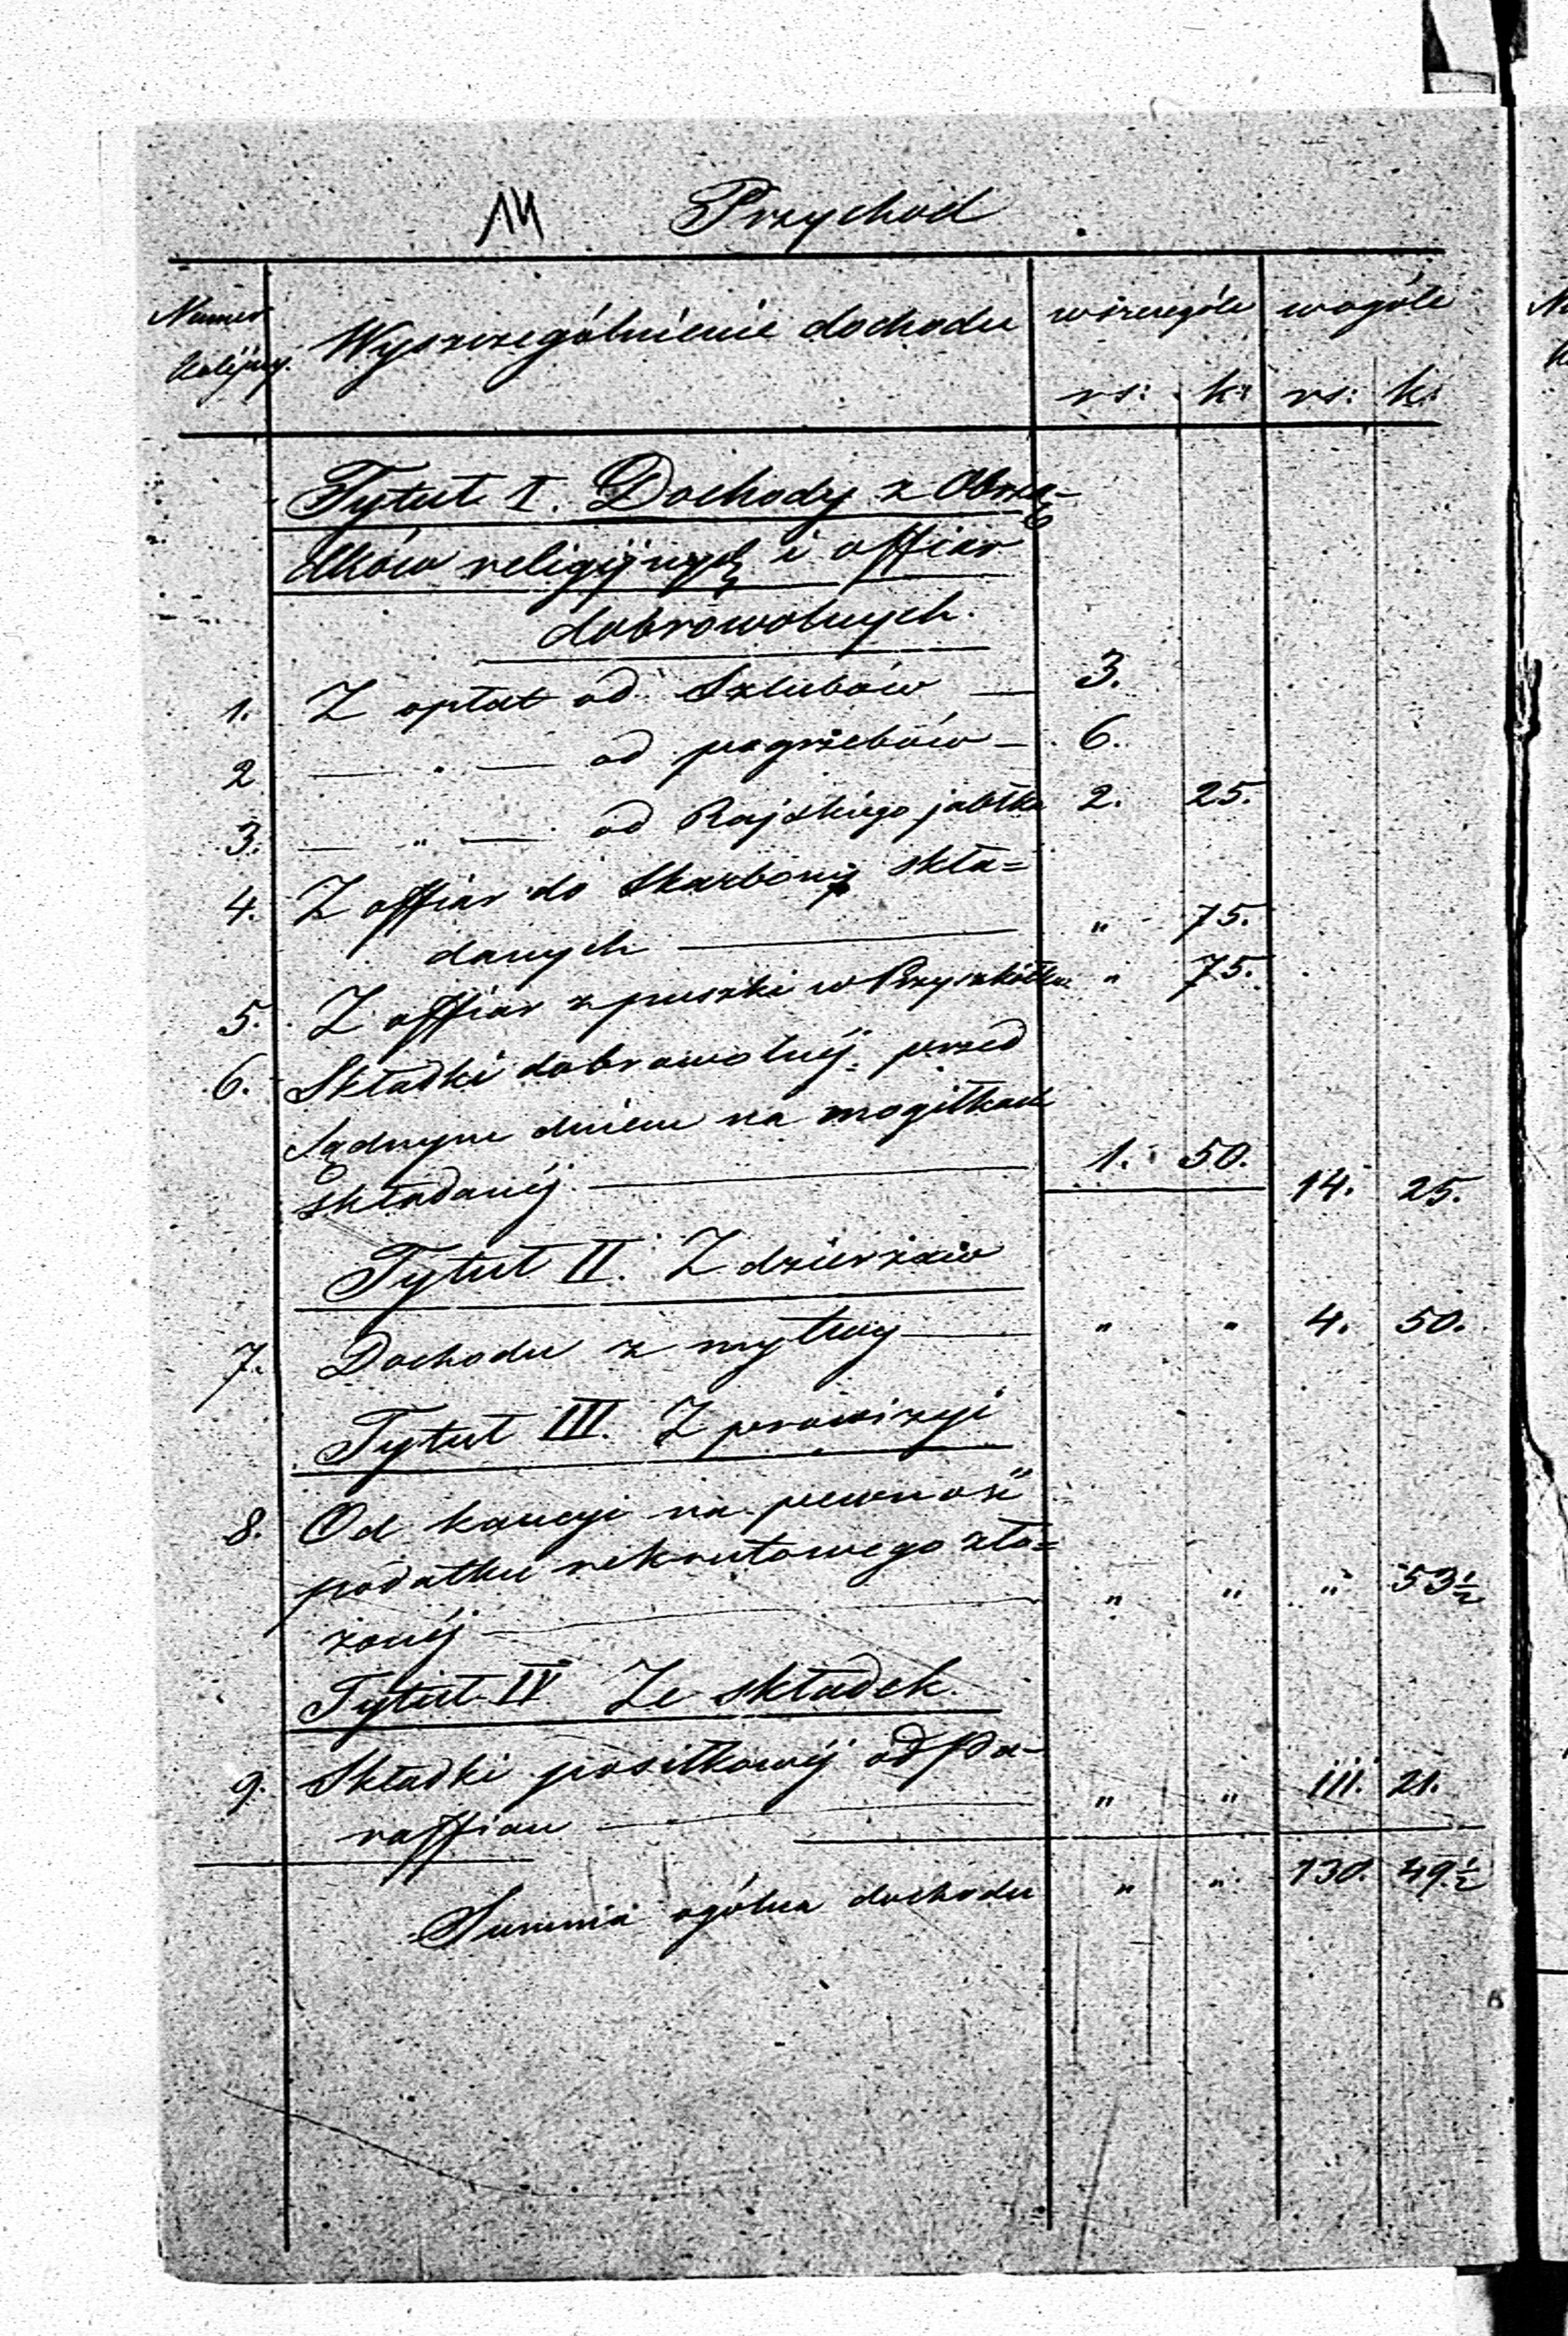 14 Przychod
Numer kolejny. Wyszczególnienie dochodu wszczególe wogóle
rs: k: rs: k:
Tytuł I. Dochody z Obrzę-
dków religijnych i offiar
dobrowolnych.
1. Z opłat od Szlubów — 3.
2 — " — od pogrzebów — 6.
3. — " — od Rajskiego jabłka 2. 25.
4. Z offiar do Skarbony skła=
danych — " 75.
5. Z offiar z puszki w Przyszkółku " 75.
6. Składki dobrowolnéj przed
Sądnym dniem na mogiłkach
Składanéj — 1. 50. 14. 25.
Tytuł II. Z dzierżaw
7. Dochodu z mytwy — " " 4. 50.
Tytuł III. Z prowizyi
8. Od kaucyi na pewność
podatku rekrutowego zło=
żonéj — " " " 53½
Tytuł IV Ze składek.
9. Składki posiłkowéj od Pa-
raffian — " " 111. 21.
Summa ogólna dochodu " " 130. 49½